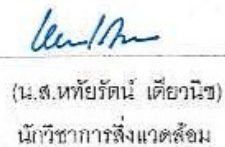 (น.ส.หทัยรัตน์ เดียวนิซ)
นักวิชาการสิ่งแวดล้อม